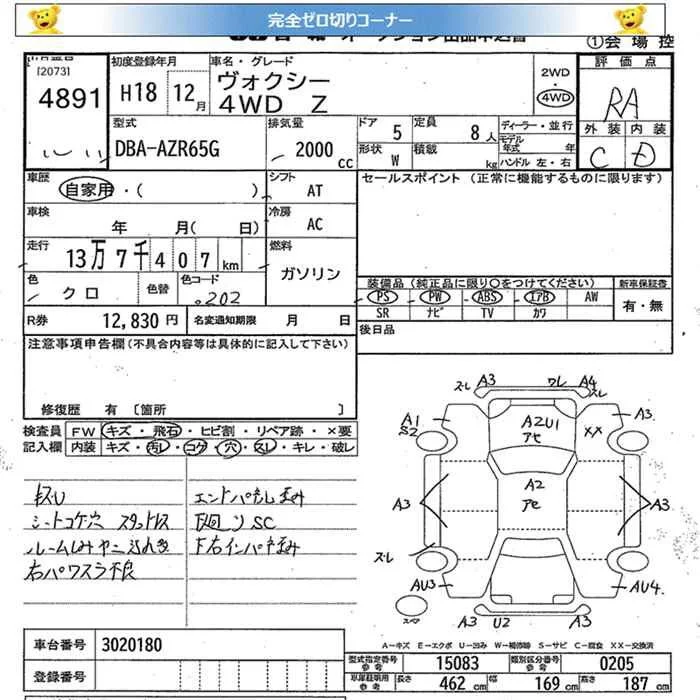 完全ゼロ切りコーナー
①会場控
[2073]
4891
初度登録年月
H18 12月
車名・グレード
ヴォクシー
4WD Z
2WD
・
4WD
評価点
RA
外装 内装
C D
型式
DBA-AZR65G
排気量
2000 cc
ドア 5
定員 8人
形状 W
積載 kg
ディーラー・並行
モデル年式 年
ハンドル 左・右
車歴
自家用・( )
シフト
AT
セールスポイント (正常に機能するものに限ります)
車検
年 月( 日)
冷房
AC
走行
13万7千407km
燃料
ガソリン
色
クロ
色替
色コード
202
装備品(純正品に限り○をつけてください)
新車保証書
PS PW ABS エアB AW
SR ナビ TV カワ
有・無
R券 12,830円
名変通知期限 月 日
後日品
注意事項申告欄(不具合内容等は具体的に記入して下さい)
修復歴 有〔箇所 〕
検査員記入欄
FW キズ・飛石・ヒビ割・リペア跡・×要
内装 キズ・汚レ・コゲ・穴・スレ・キレ・破レ
シートコゲ穴 スタッドレス
ルームしみヤニ汚れ
右パワスラ不良
A3 ワレ A4
スレ
A1
S2
A3
A2U1
XX
A2
A3
A3
スレ
AU3
AU4
A3 U2 A3
スペア
A-キズ E-エクボ U-凹み W-補修跡 S-サビ C-腐食 XX-交換済
車台番号 3020180
登録番号
型式指定番号参考 15083
類別区分番号参考 0205
車庫証明用参考 長さ 462cm 幅 169cm 高さ 187cm